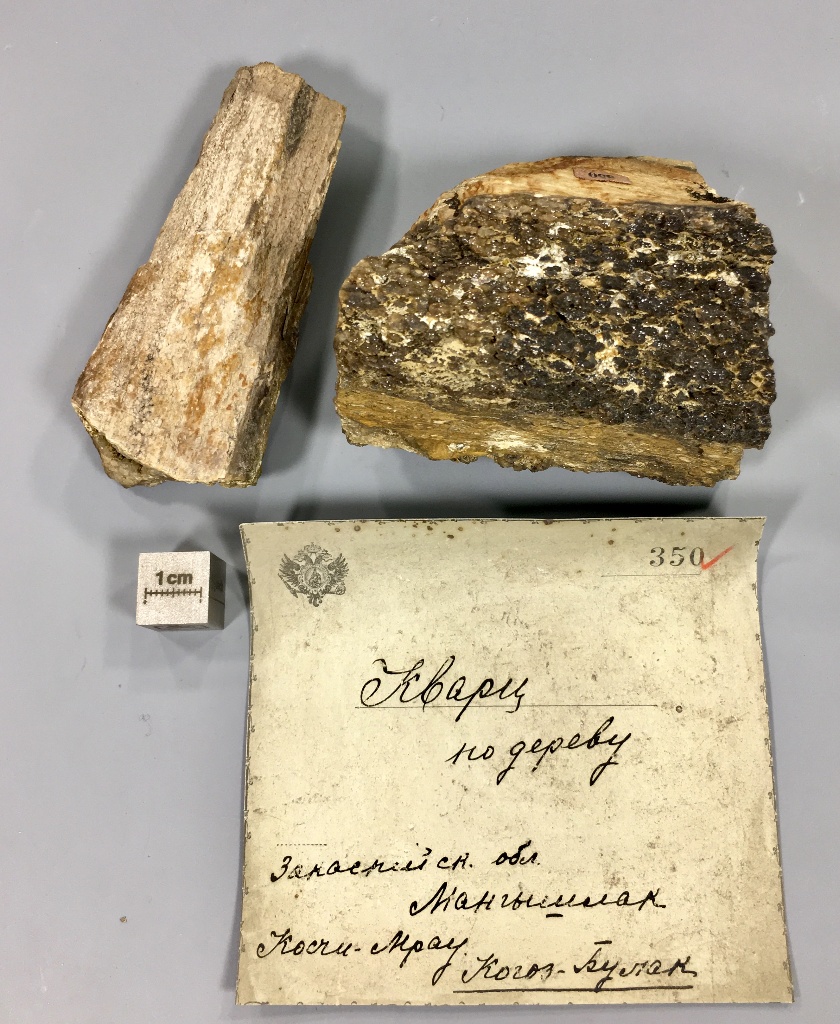 1cm
350
Кварц
по дереву
Закаспийск. обл.
Мангышлак
Когоз-Булак